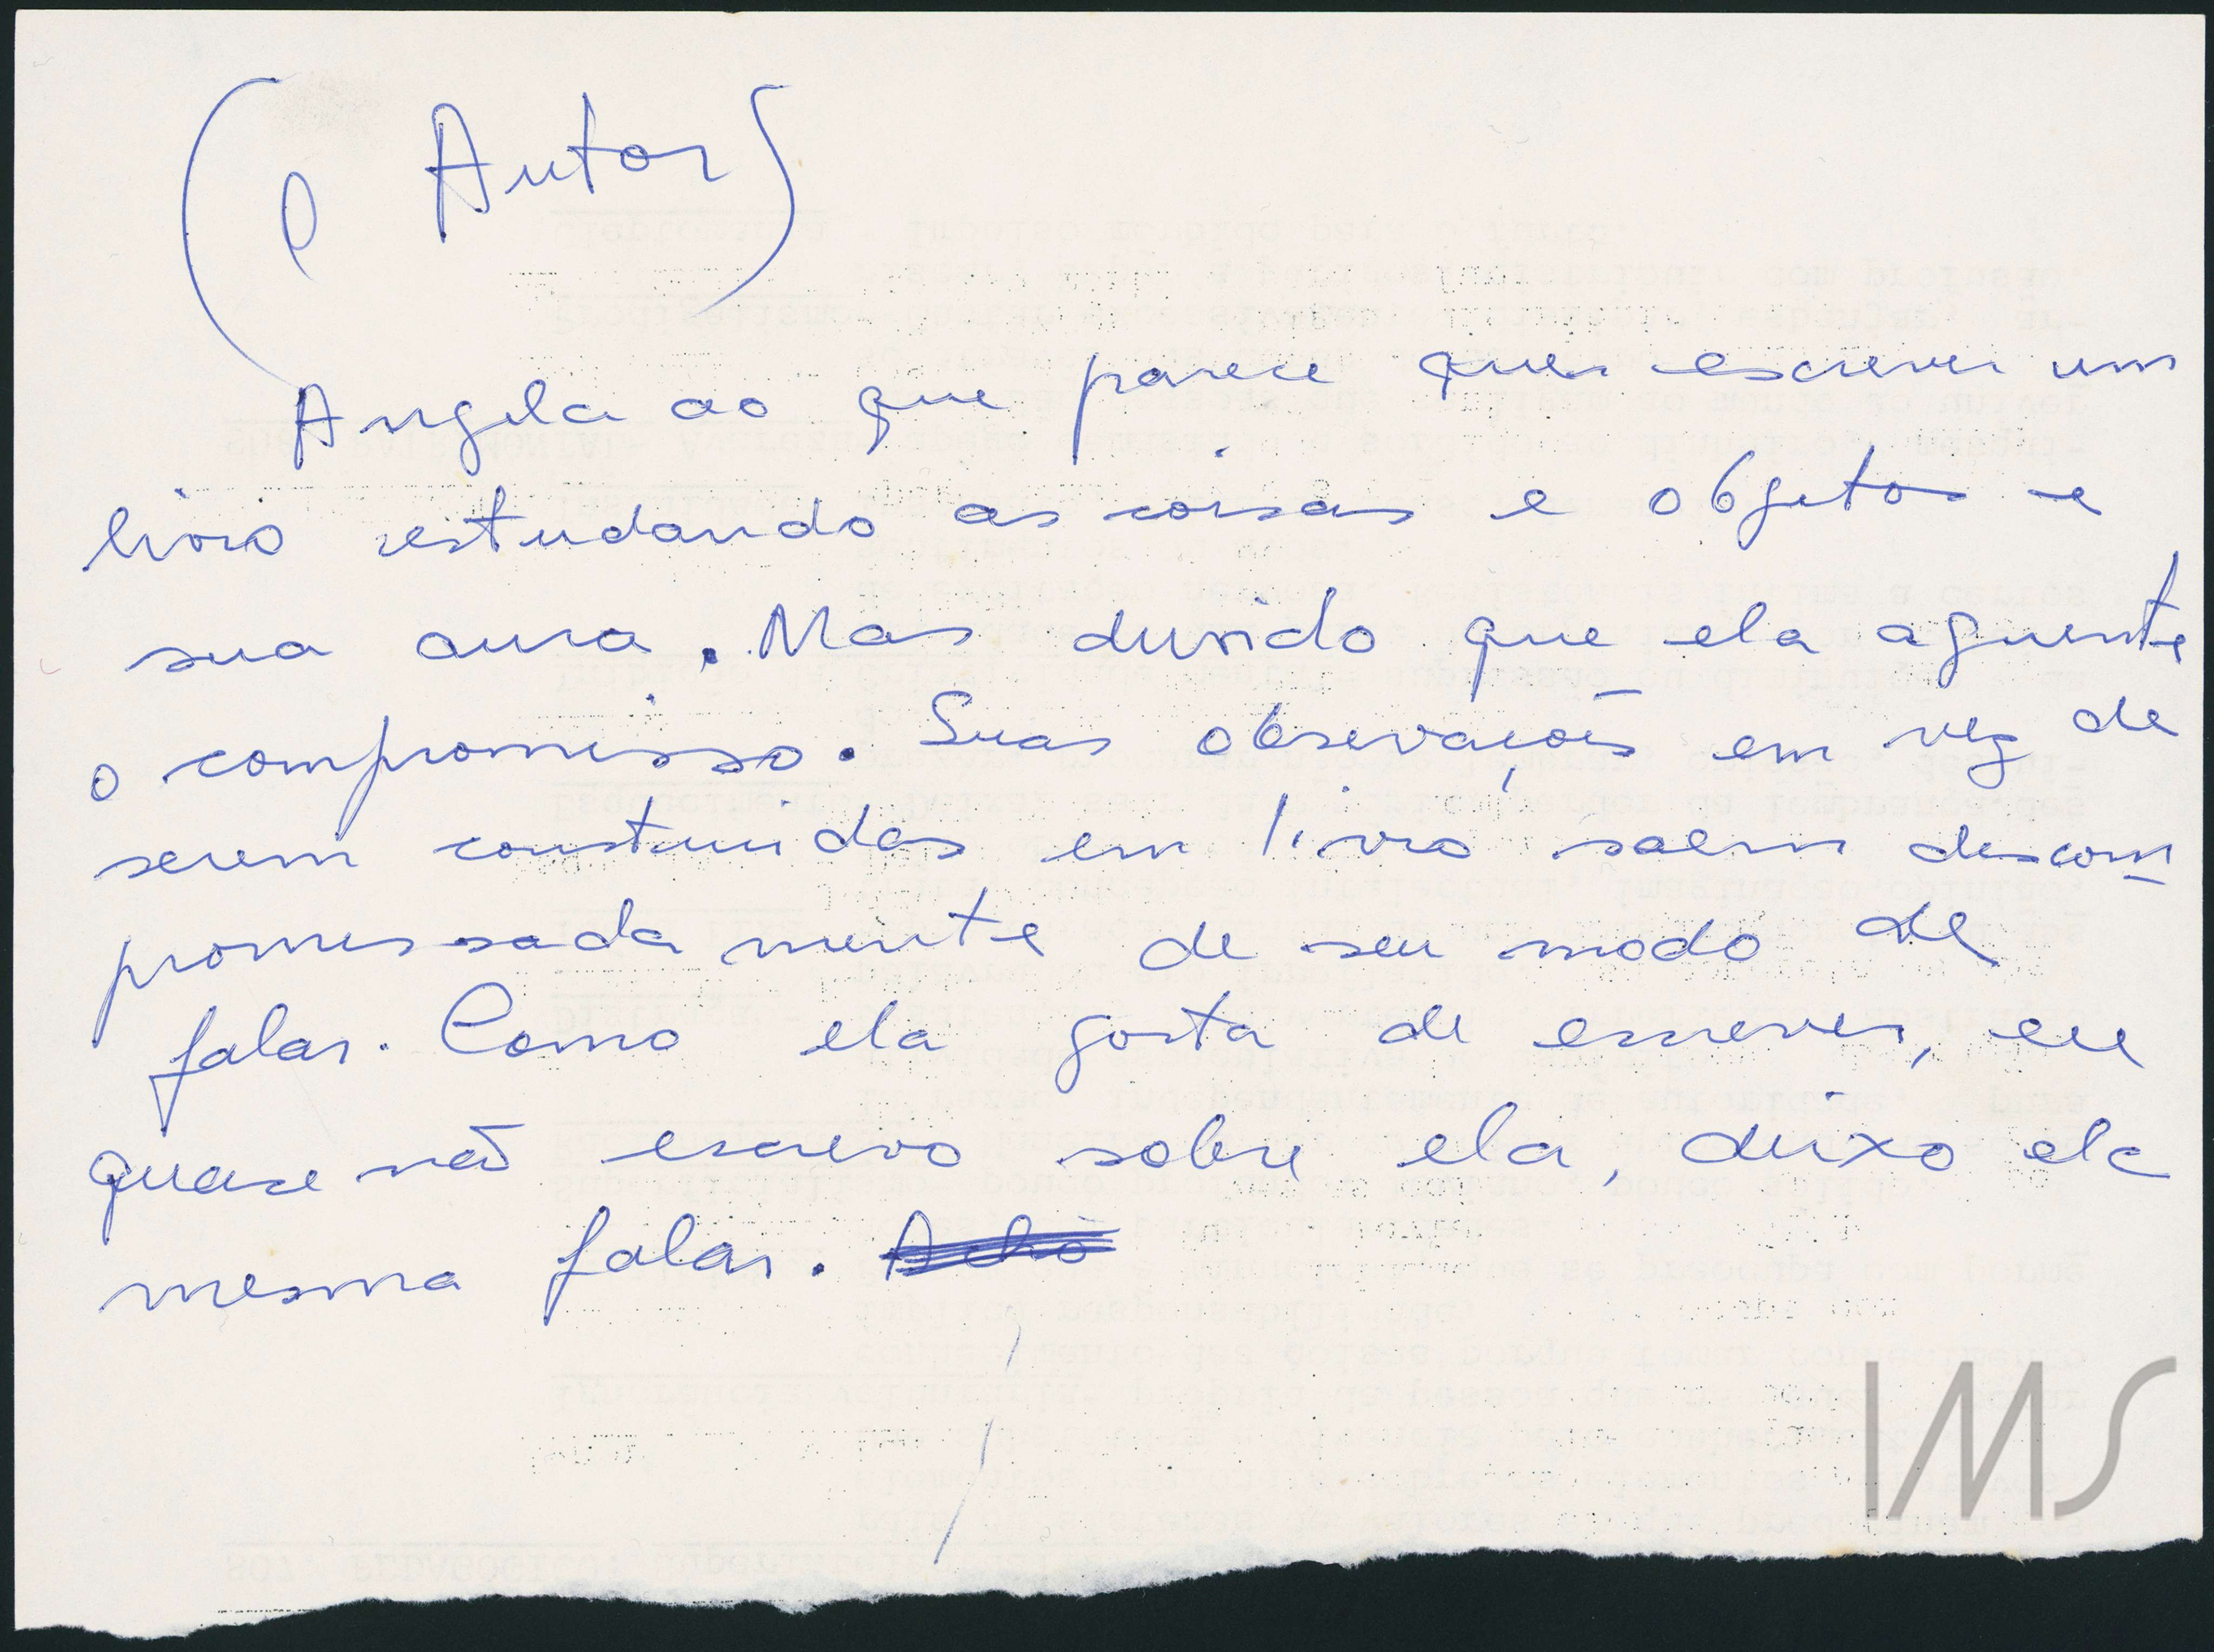 (O Autor)
Angela ao que parece quer escrever um
livro estudando as coisas e objetos e
sua aura. Mas duvido que ela aguente
o compromisso. Suas observações em vez de
serem construidas em livro saem descom
promissadamente de seu modo de
falar. Como ela gosta de escrever, eu
quase não escrevo sobre ela, deixo ela
mesma falar. Acho
IMS